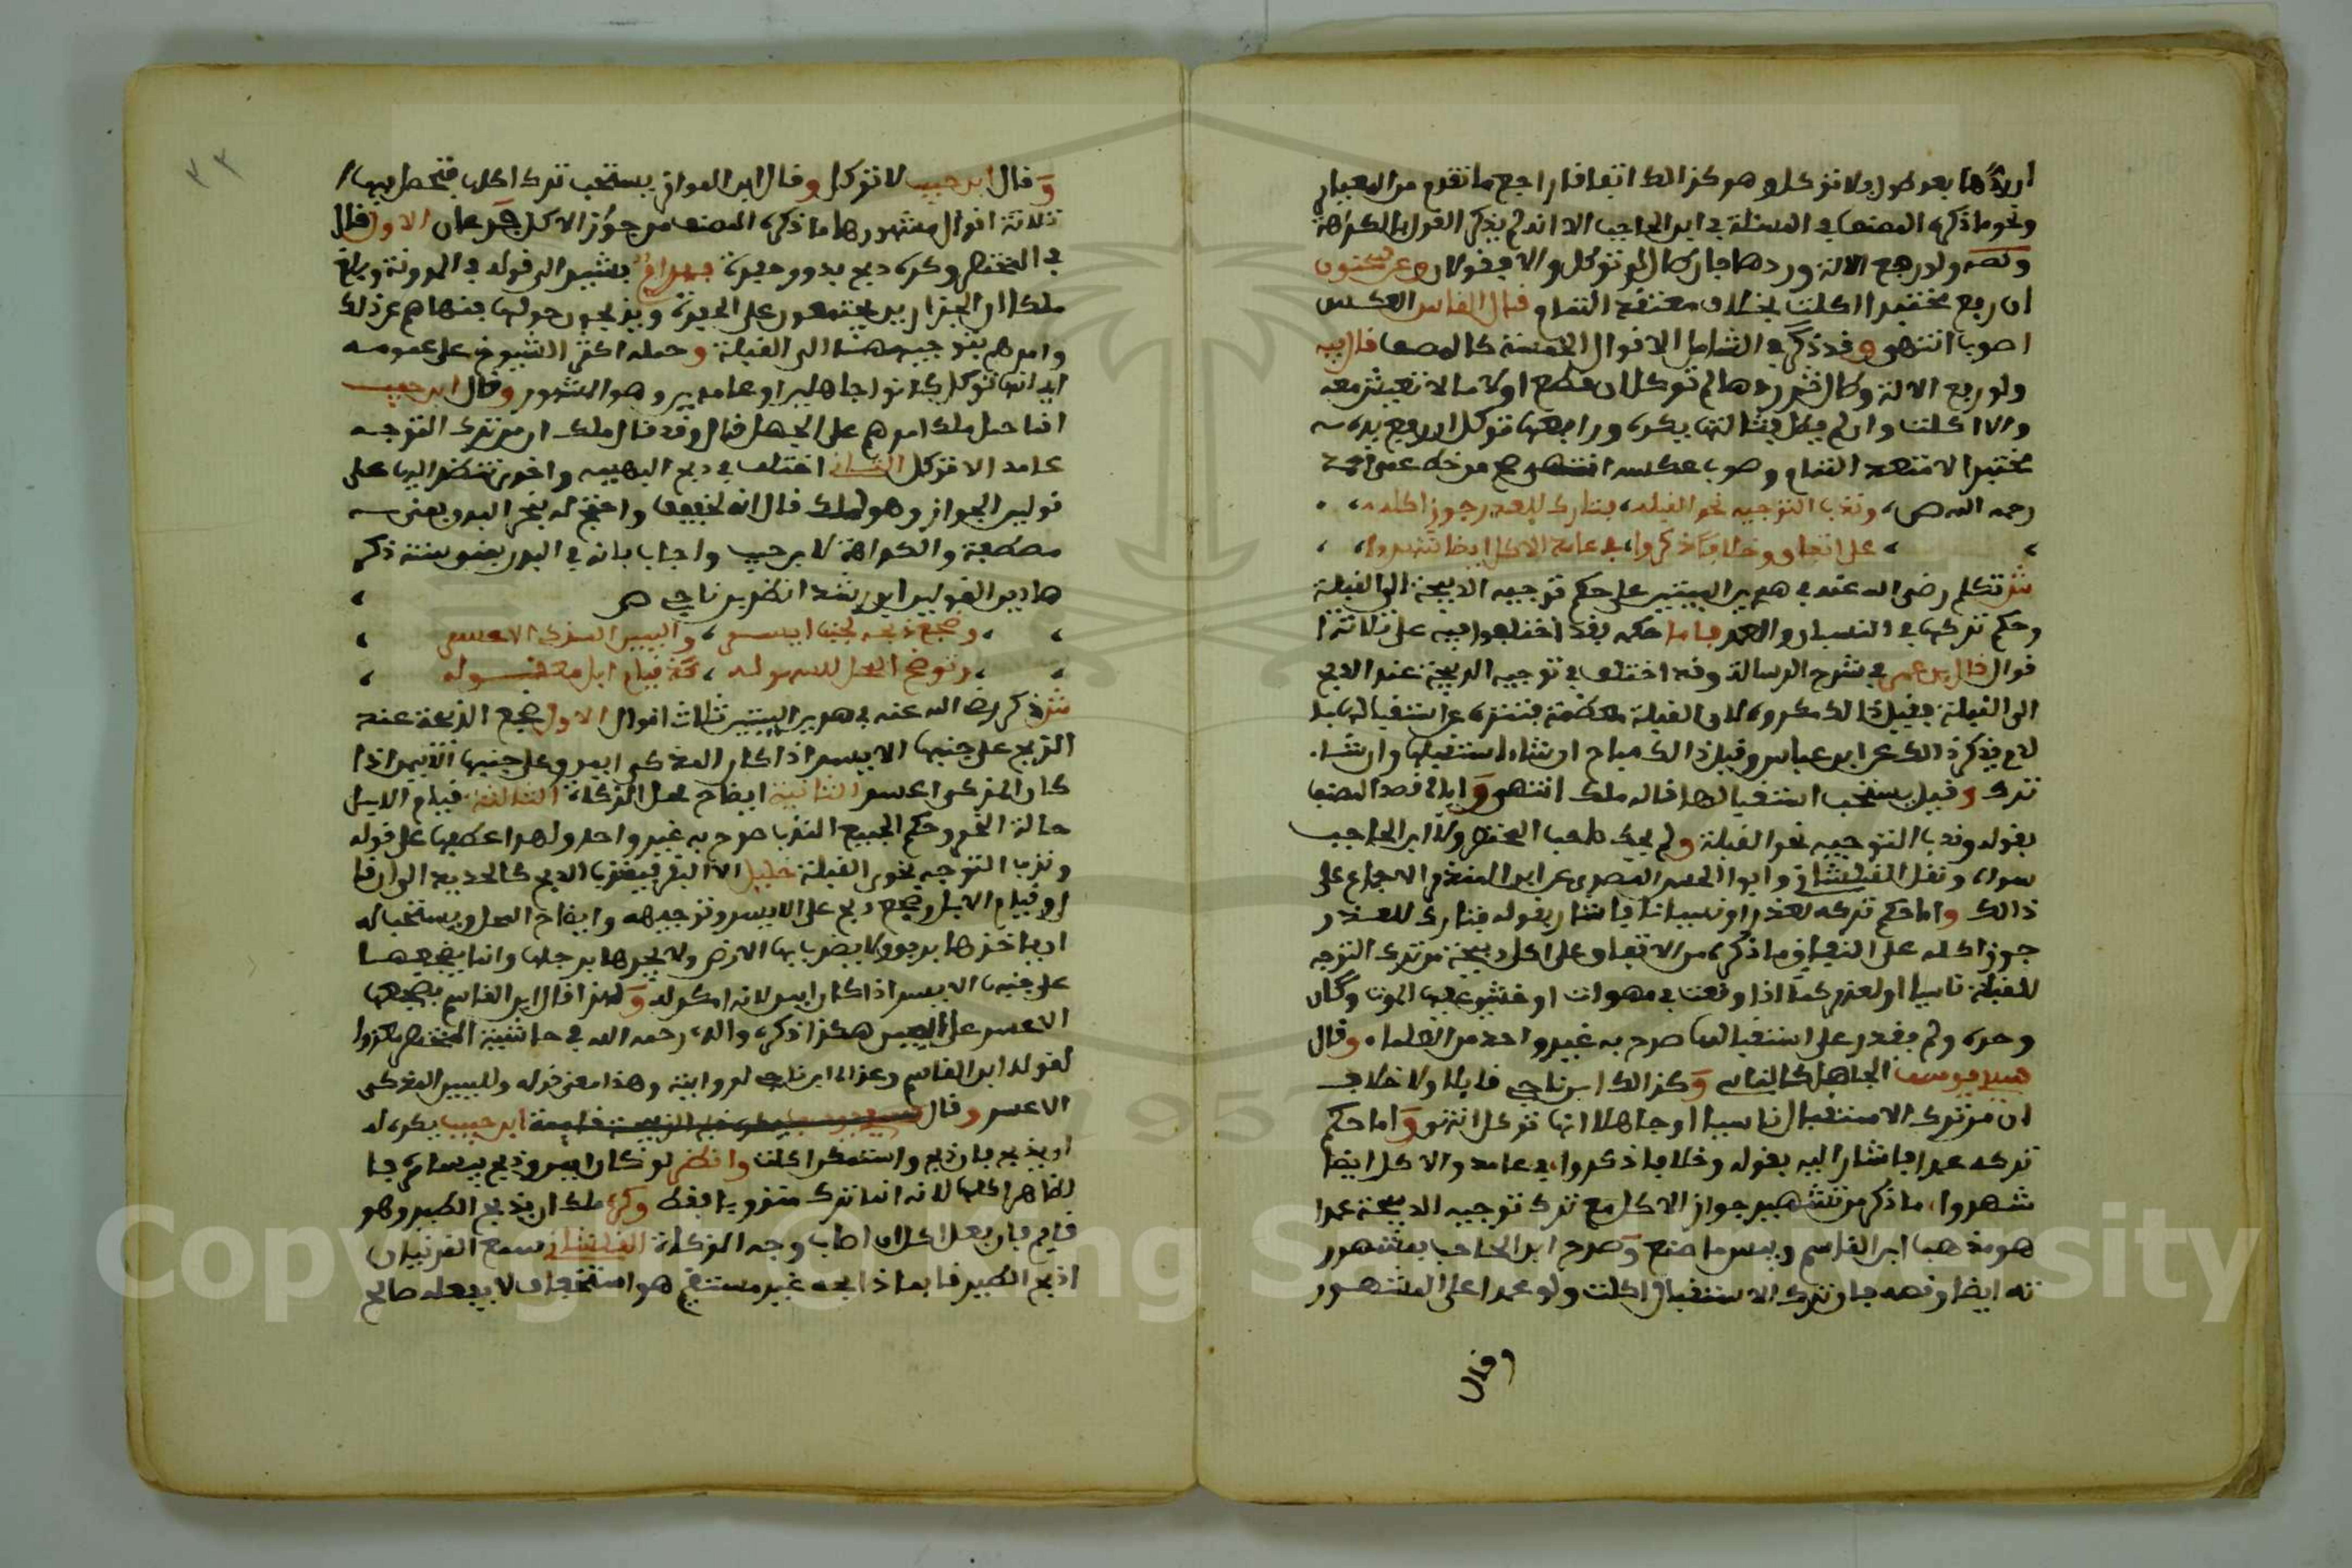 بعد طول ولا توكل وهو كذالك اتفافا راجع ما تقدم من المعيار
ونحو ما ذكره المصنف في المسئلة في ابن الحاجب الا انه لم يذكر القول بالكراهة
ونصه ولو رجع الالة وردها فان طال لم توكل والا فقولان وعن سحنون
ان رجع مختبرا اكلت بخلاف معتقد التمام فال الفابس العكس
اصوب انتهى وقد ذكر في الشامل الافوال الخمسة كالمصنف فال فيه
ولو رفع الالة وطال ثم ردها لم توكل ان قطع اولا ما لا تعيش معه
والا اكلت وان لم يطل فثالثها يكره ورابعها توكل ان رفع يده
مختبرا لا معتقد التمام وصوب عكسه انتهى من خط عمى
رحمه الله ص، وندب التوجيه نحو الفبله، بتارك للعذر جوز اكله،
على اتفاق وخلافا ذكروا، في عامد الاكل ايضا شهروا،
ش تكلم رضى الله عنه في هذين البيتين على حكم توجيه الذبيحة الى الفبلة
وحكم تركها في النسيان والعمد فاما حكمه بفد اختلفوا فيه على ثلاثة
فوال فال بن عمر في شرح الرسالة وفد اختلف في توجيه الذبيحة عند الذبح
الى الفبلة ففيل ذالك مكروه لان الفبلة معظمة فتنزه عن استفبالها
ذكر ذالك عن ابن عباس وفيل ذالك مباح ان شاء استفبلها وان شاء
ترك وفيل يستحب استفبالها فاله ملك انتهى وايا فصد المصنف
بفوله وندب التوجيه نحو الفبلة ولم يحك صاحب المختصر ولا ابن الحاجب
سواه ونفل الفلشاني وابوا الحسن المصرى عن ابن المنذر الاجماع على
ذالك واما حكم تركه لعذر او نسيانا فاشار بفوله فتارك للعذر
جوز اكله على اتفاق وما ذكره من الاتفاق على اكل ذبيحة من ترك التوجه
للفبلة ناسيا او لعذر كما اذا وفعت في مهوات او خشي عليها الموت وكان
وحده ولم يفدر على استفبالها صرح به غير واحد من العلماء وفال
سيدى يوسف الجاهل كالناسي وكذالك ابن ناجي فايلا ولا خلاف
ان من ترك الاستفبال ناسيا او جاهلا انها توكل انتهى واما حكم
تركه عمدا فاشار اليه بفوله وخلافا ذكروا، في عامد والاكل ايضا
شهروا، ما ذكر من تشهير جواز الاكل مع ترك توجيه الذبيحة عمدا
هو مذهب ابن الفاسم وبيس ما صنع وصرح ابن الحاجب بمشهور
ته ايضا ونصه فان ترك الاستفبال اكلت ولو عمدا على المشهور
وفال
٣٣
وفال ابن حبيب لا توكل وفال ابن المواز يستحب ترك اكلها فتحصل فيها
ثلاثة افوال مشهورها ما ذكره المصنف من جواز الاكل فرعان الاول فال
في المختصر وكره ذبح بدور حفرة بهرام يشير الى فوله في المدونة وبلغ
ملكا ان الجزارين يجتمعون على الحفرة ويذبحون حولها فنهاهم عن ذلك
وامرهم بتوجيهها الى الفبلة وحمله اكثر الشيوخ على عمومه
اي انها توكل كانوا جاهلين او عامدين وهو المشهور وفال ابن حبيب
انما حمل ملك امرهم على الجهل فال وفد فال ملك ان من ترك التوجه
عامدا لا توكل الثاني اختلف في ذبح البهيمة واخرى تنظر اليها على
فولين الجواز وهو لملك فال انه لخفيف واحتج له بنحر البدن بعضه
مصطفة والكراهة لابن حبيب واجاب بان في البدن بعض سنة ذكر
هاذين الفولين ابن رشد انظر بن ناجي ص
، وضجع ذبحه لجنب ايسرى، واليمين المذكى الاعسرى
، وتوضح المحل للسهوله، كذا فيام ابل معفوله
ش ذكر رضى الله عنه في هذين البيتين ثلاث افوال الاول ضجع الذبيحة عند
الذبح على جنبها الايسر اذا كان المذكى ايمن وعلى جنبها الايمن اذا
كان المذكى اعسر الثانية ايضاح محل الذكاة الثالثة فيام الابل
حالة النحر وحكم الجميع الندب صرح به غير واحد ولهذا عطفها على فوله
وندب التوجيه نحو الفبلة خليل
او فيام الابل وضجع ذبح على الايسر وتوجيهه وايضاح المحل ويستحب له
ان ياخذها برفق ولا يضرب بها الارض ولا يجرها برجلها وانما يضجعها
على جنبها الايسر اذا كان ايمن لانه امكن له وكذا فال ابن الفاسم يضجعها
الاعسر على اليمين هكذا ذكره والده رحمه الله في حاشية المختصر
لفوله ابن الفاسم وعزاه ابن ناجي لروايته وهذا معنى فوله ولليمين المذكى
الاعسر وفال ابن حبيب يكره له
ان يذبح فان ذبح واستمكن اكلت وانظر لو كان ايمن وذبح بيساره فا
لظاهر اكلها لانه انما ترك مندوبا ففط وكره ملك ان يذبح الطير وهو
فايم فان فعل اكل ان اصاب وجه الذكاة الفلشاني سمع الفرنيان
اذبح الطير فايما ذابحه غير مستفيم هو استخفاف لا يفعله صالح